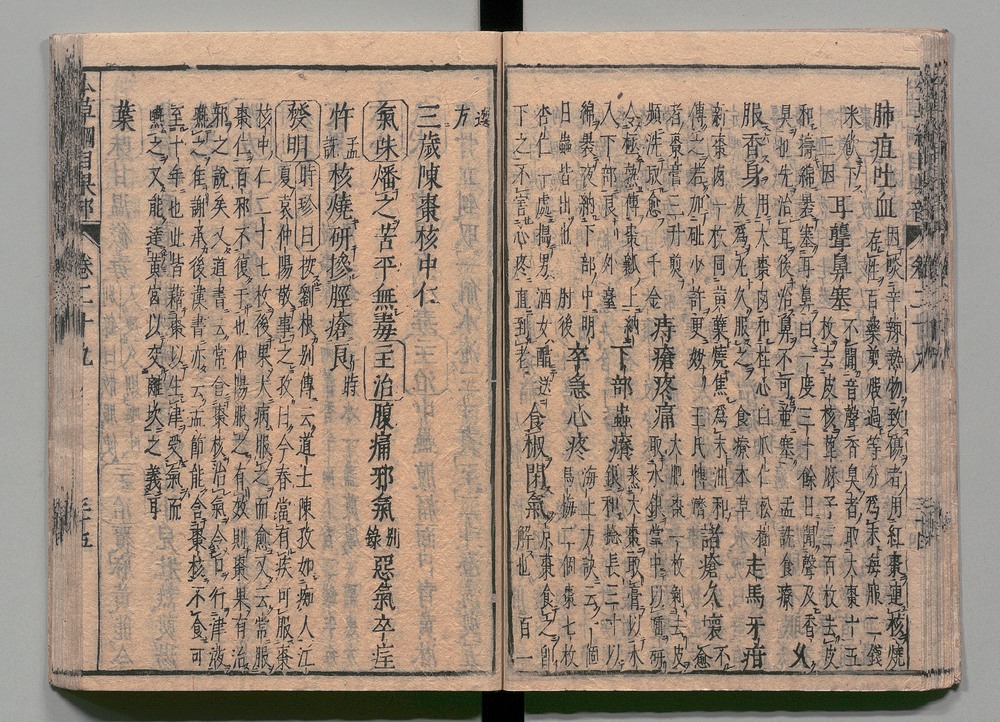 肺疽吐血 因啖辛辣熱物致傷者用紅棗連核燒
存性百藥煎煅過等分爲末每服二錢
米飲下 三因 耳聾鼻塞 不聞音聲香臭者取大棗十五
枚去皮核蓖麻子三百枚去皮
和搗綿裹塞耳鼻日一度三十餘日聞聲及香
臭也先治耳後治鼻不可並塞 孟詵食療 久
服香身 用大棗肉和桂心白瓜仁松樹
皮爲丸久服之 食療本草 走馬牙疳
新棗肉一枚同黃蘗燒焦爲末油和
傅之若加砒少許更妙 王氏博濟 諸瘡久壞不愈
者棗膏三升煎水
頻洗取愈 千金 痔瘡疼痛 大肥棗一枚剝去皮
取水銀掌中以唾研
令極熟傅棗瓤上納
入下部良 外臺 下部蟲癢 蒸大棗取膏以水
銀和捻長三寸以
綿裹夜納下部中明
日蟲皆出也 肘後 卒急心疼 海上方訣一個
烏梅二個棗七枚
杏仁一處搗男酒女醋送
下之不害心疼直到老 食椒閉氣 京棗食之即
解也 百一
選方
三歲陳棗核中仁
氣味 燔之苦平無毒 主治 腹痛邪氣 別錄 惡氣卒疰
忤 孟詵 核燒研摻脛瘡良 時珍
發明 時珍曰 按劉根別傳云道士陳孜如癡人江
夏袁仲陽敬事之孜曰今春當有疾可服棗
核中仁二十七枚後果大病服之而愈又云常服
棗仁百邪不復干也仲陽服之有效則棗果有治
邪之說矣又道書云常含棗核治氣令口行津液
嚥之佳謝承後漢書亦云孟節能含棗核不食可
至十年也此皆藉棗以生津受氣而
嚥之又能達黃宮以交離坎之義耳
葉
本草綱目果部 卷二十九 三十五